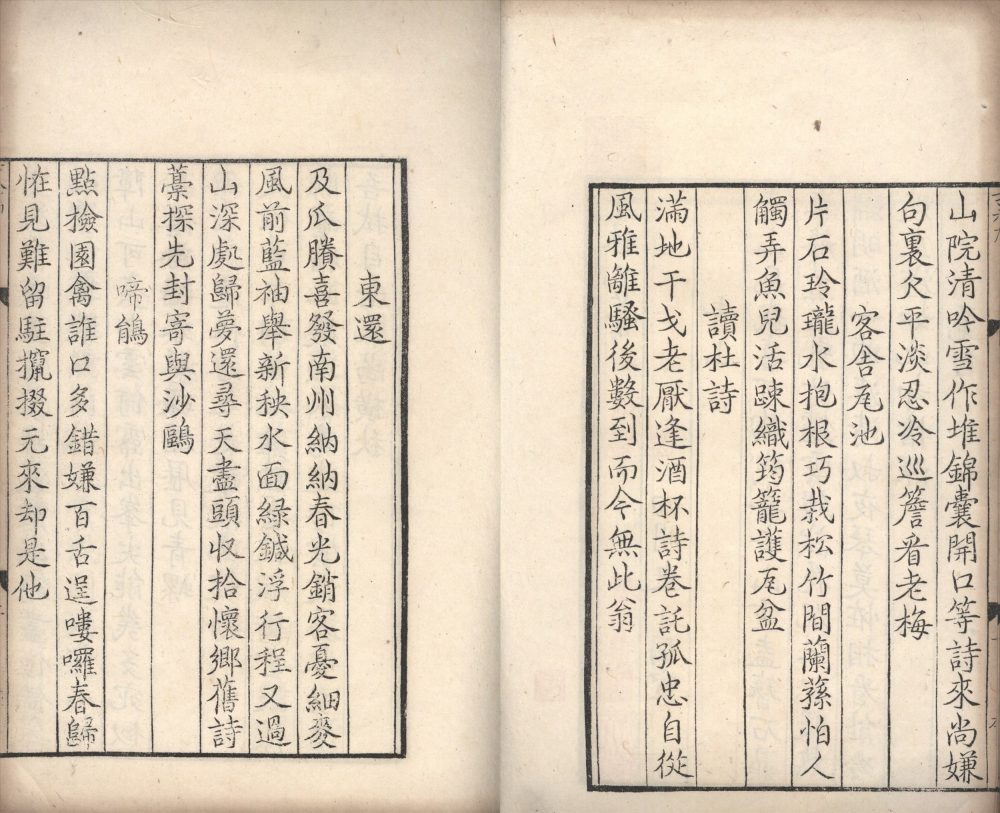 山院清吟雪作堆錦囊開口等詩來尚嫌
句裏欠平淡忍冷巡簷看老梅
客舍瓦池
片石玲瓏水抱根巧栽松竹間蘭蓀怕人
觸弄魚兒活踈織筠籠護瓦盆
讀杜詩
滿地干戈老厭逢酒杯詩卷託孤忠自從
風雅離騷後數到而今無此翁
東還
及瓜賸喜發南州納納春光銷客憂細麥
風前藍袖舉新秧水面綠鍼浮行程又過
山深處歸夢還尋天盡頭収拾懷鄉舊詩
藁探先封寄與沙鷗
啼鵑
點檢園禽誰口多錯嫌百舌逞嘍囉春歸
恠見難留駐攛掇元來却是他